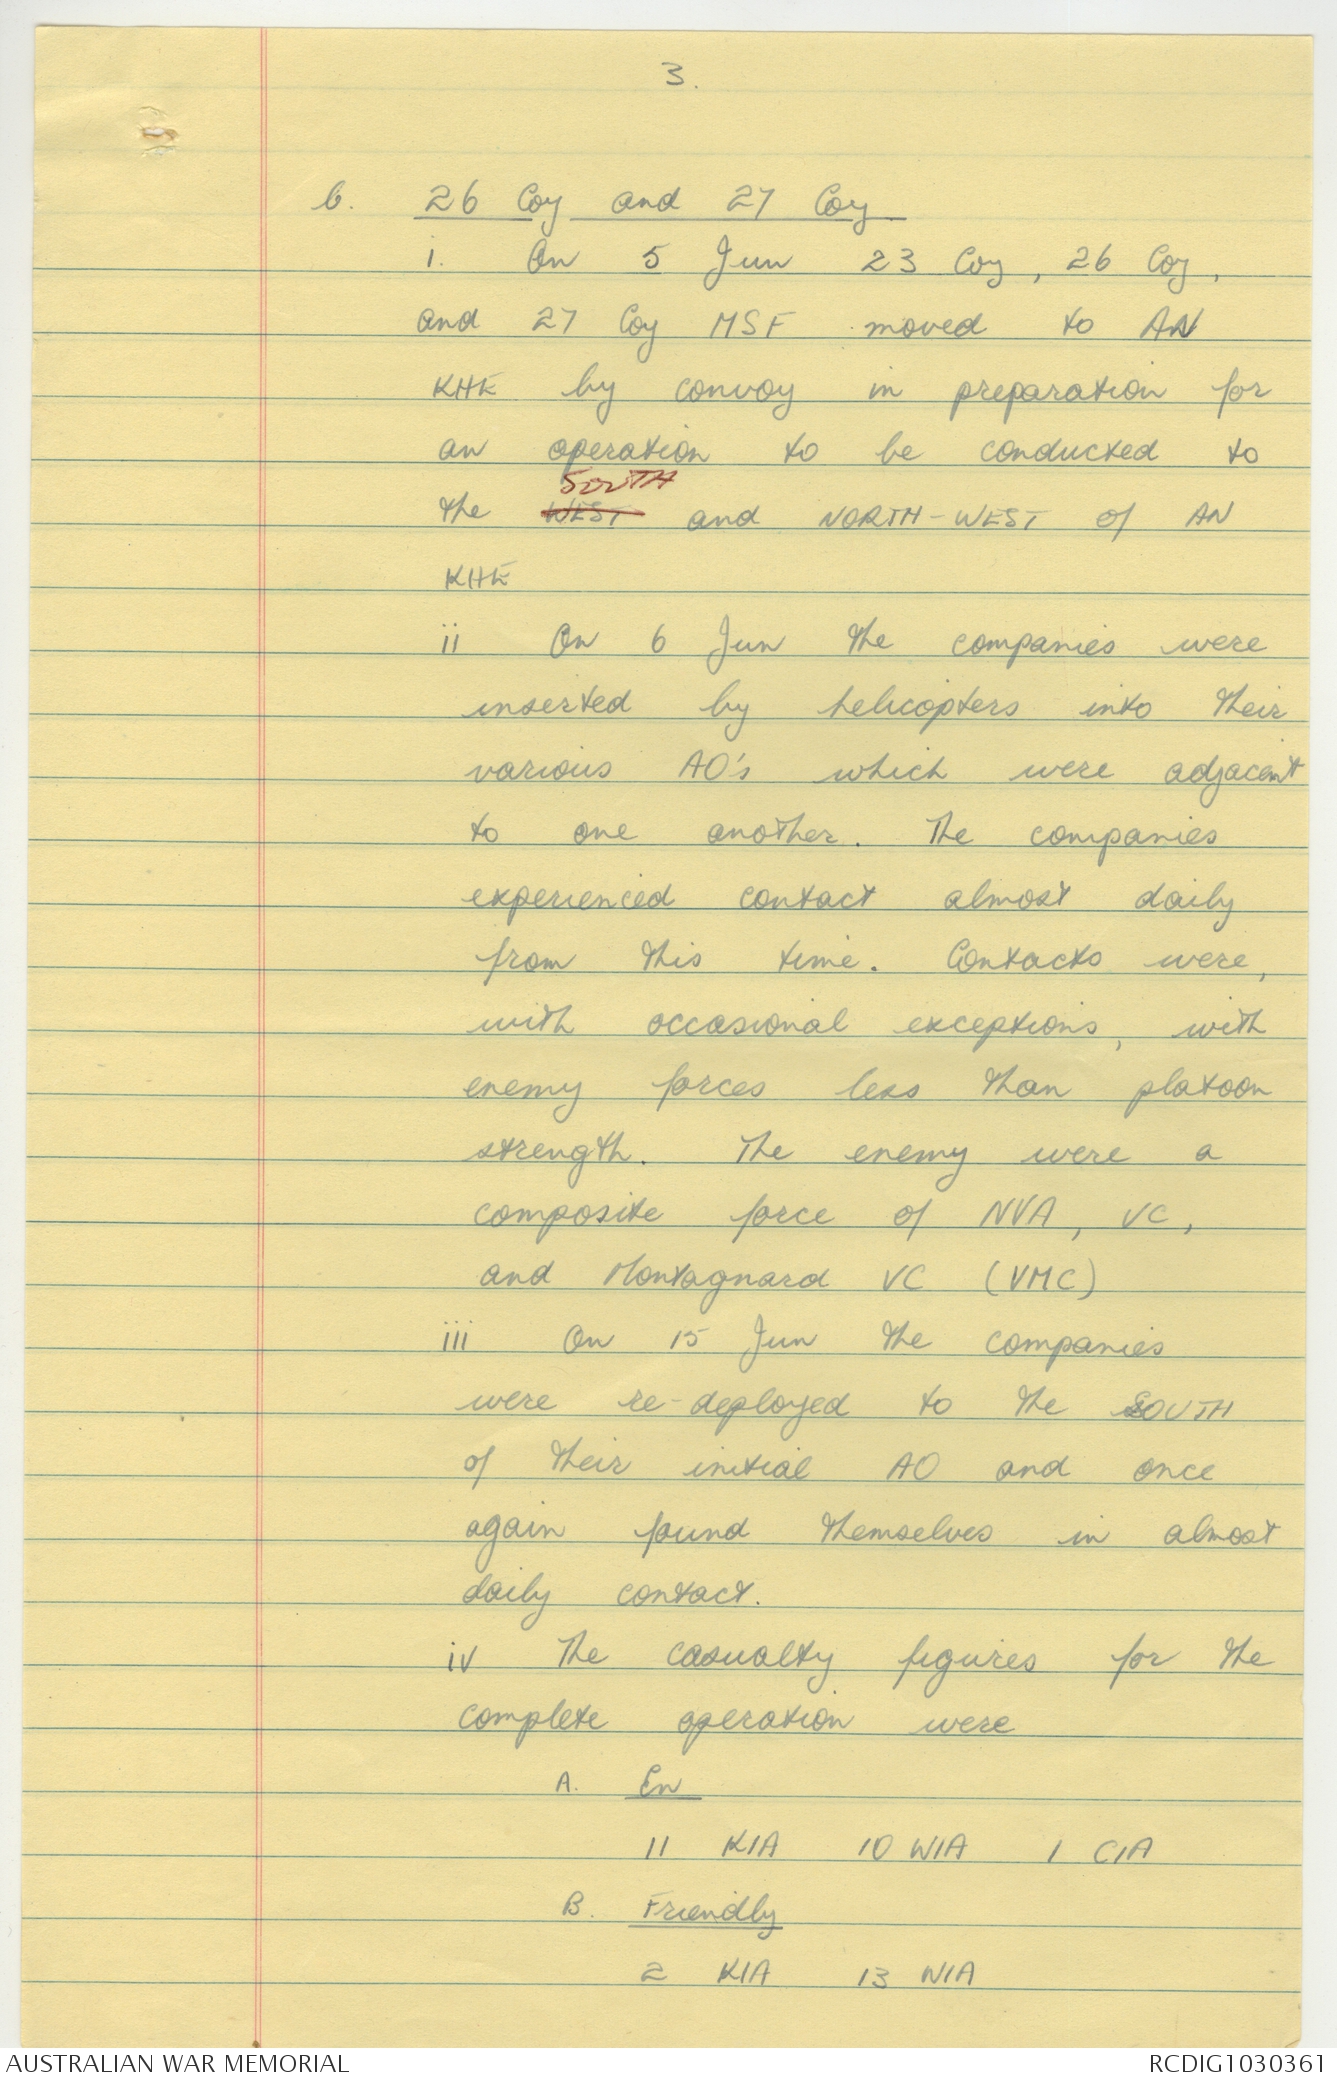 3.
b. 26 Coy and 27 Coy
i. On 5 Jun 23 Coy, 26 Coy,
and 27 Coy MSF moved to AN
KHE by convoy in preparation for
an operation to be conducted to
SOUTH
the WEST and NORTH-WEST of AN
KHE
ii On 6 Jun the companies were
inserted by helicopters into their
various AO's which were adjacent
to one another. The companies
experienced contact almost daily
from this time. Contacts were,
with occasional exceptions, with
enemy forces less than platoon
strength. The enemy were a
composite force of NVA, VC,
and Montagnard VC (VMC)
iii On 15 Jun the companies
were re-deployed to the SOUTH
of their initial AO and once
again found themselves in almost
daily contact.
iv The casualty figures for the
complete operation were
A. En
11 KIA 10 WIA 1 CIA
B. Friendly
2 KIA 13 WIA
AUSTRALIAN WAR MEMORIAL
RCDIG1030361